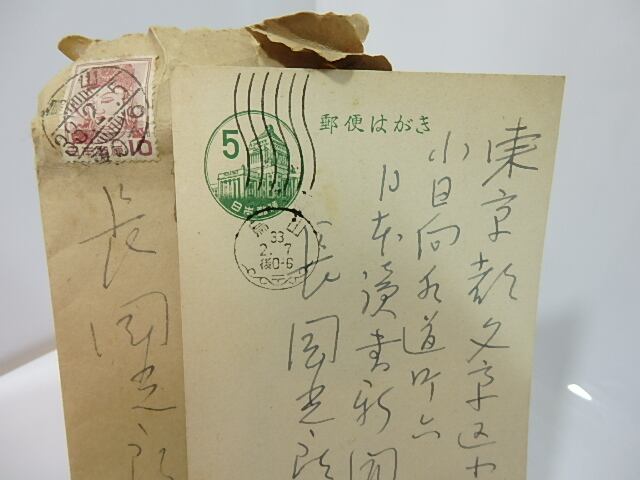 郵便はがき
5
日本郵便
岡山
33
2.7
後0-6
東京都文京区
小日向水道町六
日本讀書新聞
長岡光郎
山
30.2.5
10
長岡光郎